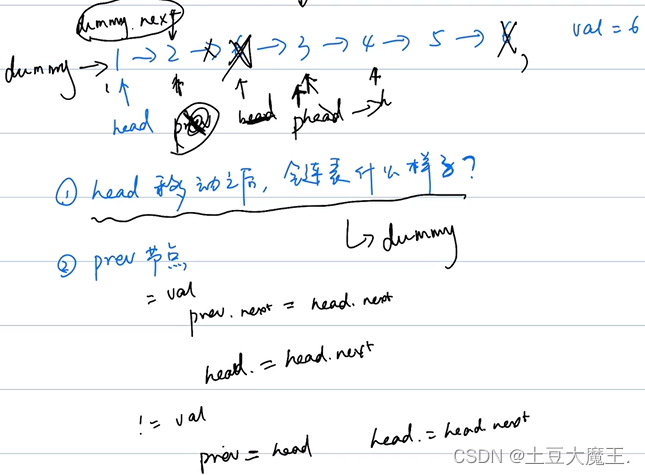 dummy.next
dummy → 1 → 2 → → 3 → 4 → 5 → val = 6
head prev head phead → h
① head 移动之后, 全链表什么样子?
↳ dummy
② prev 节点
= val
prev.next = head.next
head. = head.next
! = val
prev = head head. = head.next
CSDN @土豆大魔王.